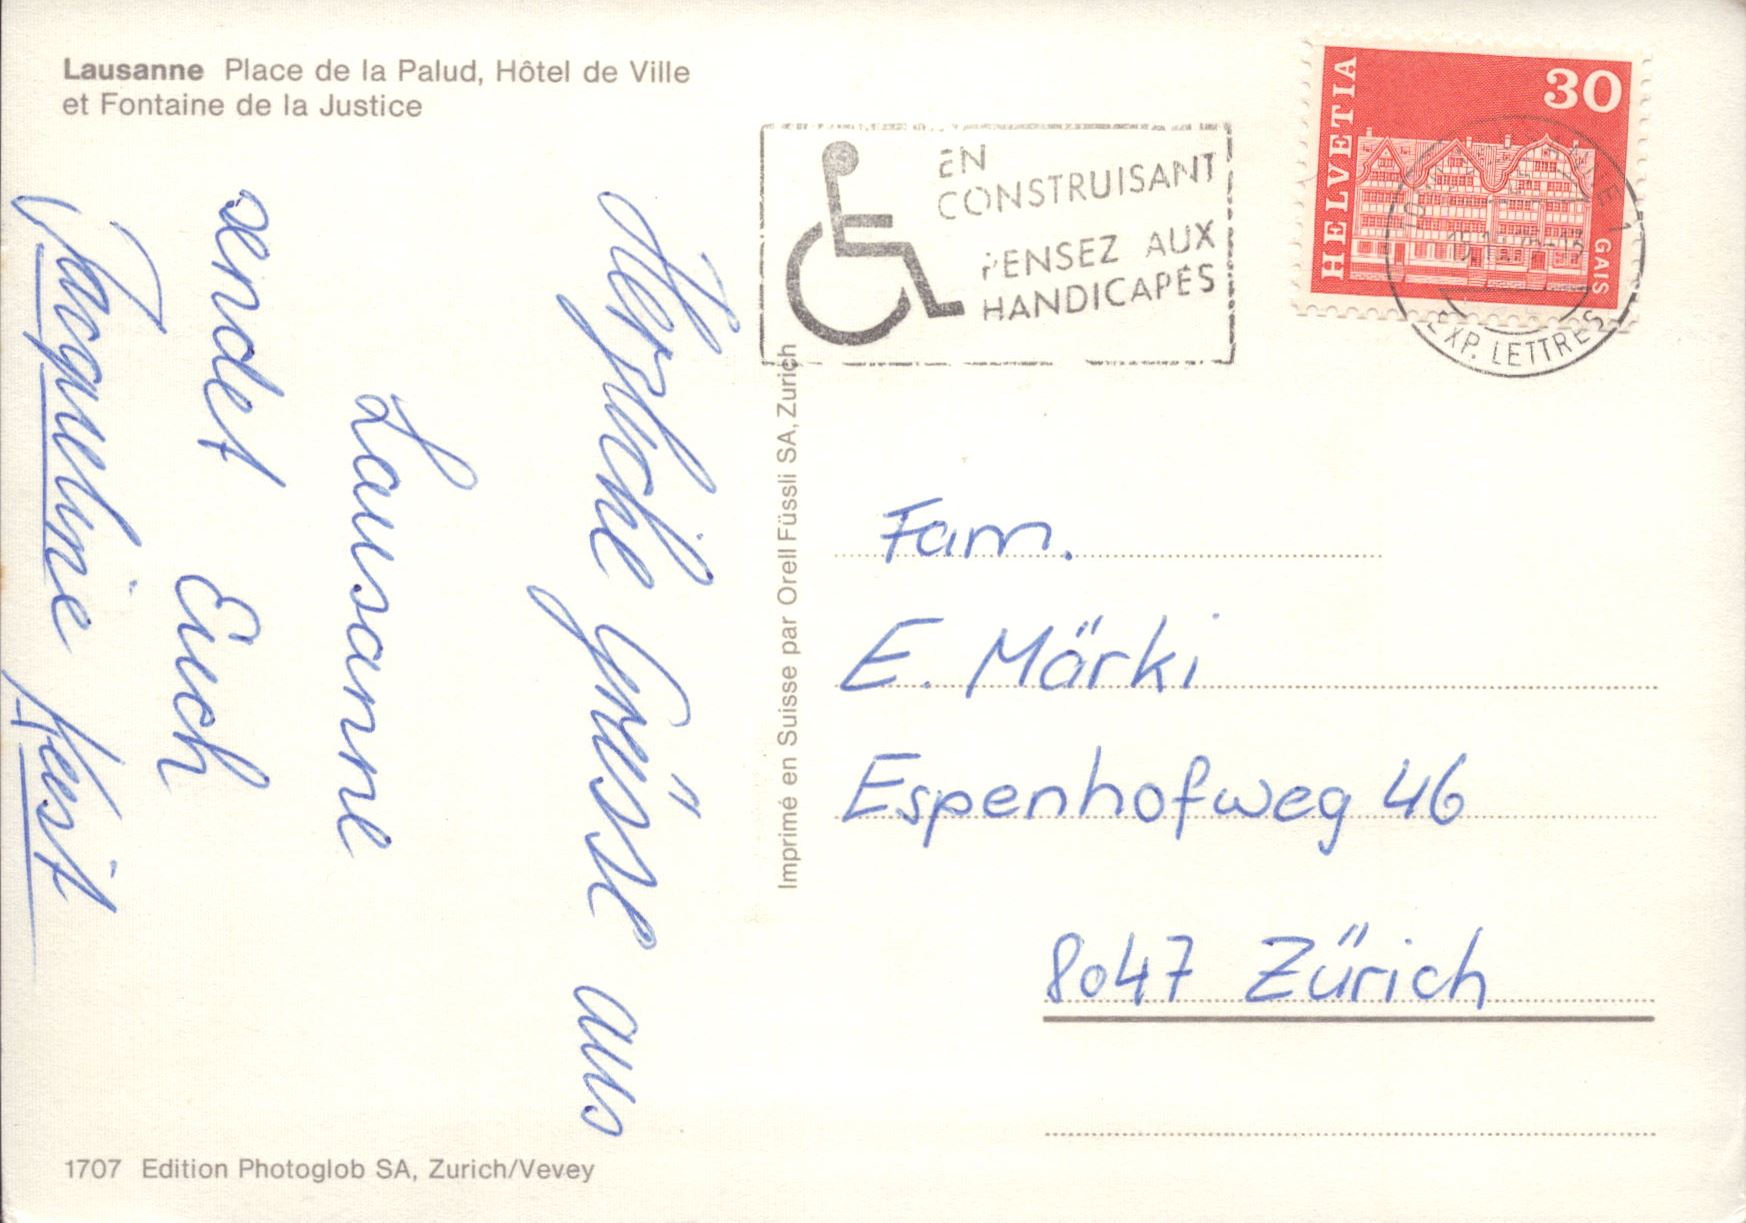 Lausanne Place de la Palud, Hôtel de Ville
et Fontaine de la Justice
Herzliche Grüsse aus
Lausanne
sendet Euch
Jacqueline
EN
CONSTRUISANT
PENSEZ AUX
HANDICAPÉS
HELVETIA
30
GAIS
EXP. LETTRES
Imprimé en Suisse par Orell Füssli SA, Zurich
Fam.
E. Märki
Espenhofweg 46
8047 Zürich
1707 Edition Photoglob SA, Zurich/Vevey